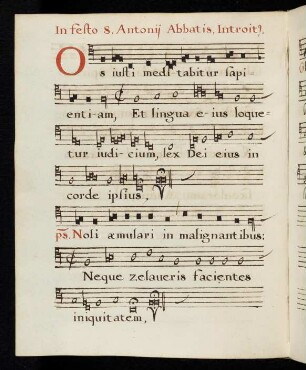 In festo S. Antonij Abbatis. Introit9.
Os iusti meditabitur sapi-
enti-am, Et lingua e-ius loque-
tur iudicium, lex Dei eius in
corde ipsius,
ps. Noli æmulari in malignantibus;
Neque zelaueris facientes
iniquitatem,